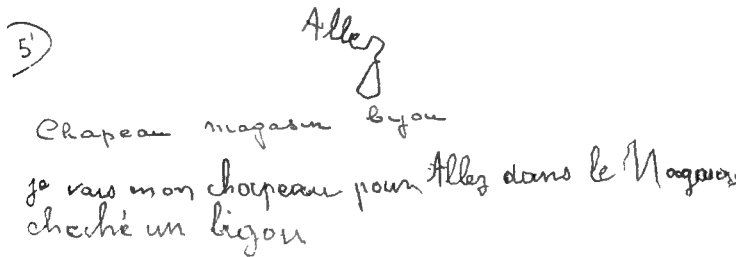 5'
Allez
Chapeau magasin bijou
je vais mon chapeau pour Allez dans le Magasin
cheché un bigou